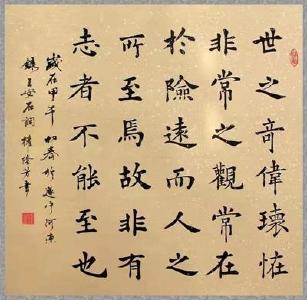 世之奇偉瓌恠
非常之觀常在
於險遠而人之
所至焉故非有
志者不能至也
歲在甲午春於
錄王安石詞書